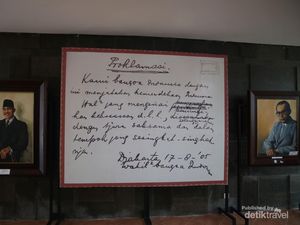 Proklamasi.
Kami bangsa Indonesia dengan
ini menjatakan kemerdekaan Indonesia.
Hal2 jang mengenai
kekoeasaan d.l.l.,
dengan tjara saksama dan dalam
tempoh jang sesingkat-singkat-
nja.
Djakarta 17-8-'05
Wakil2 bangsa Indon
Published by
detiktravel